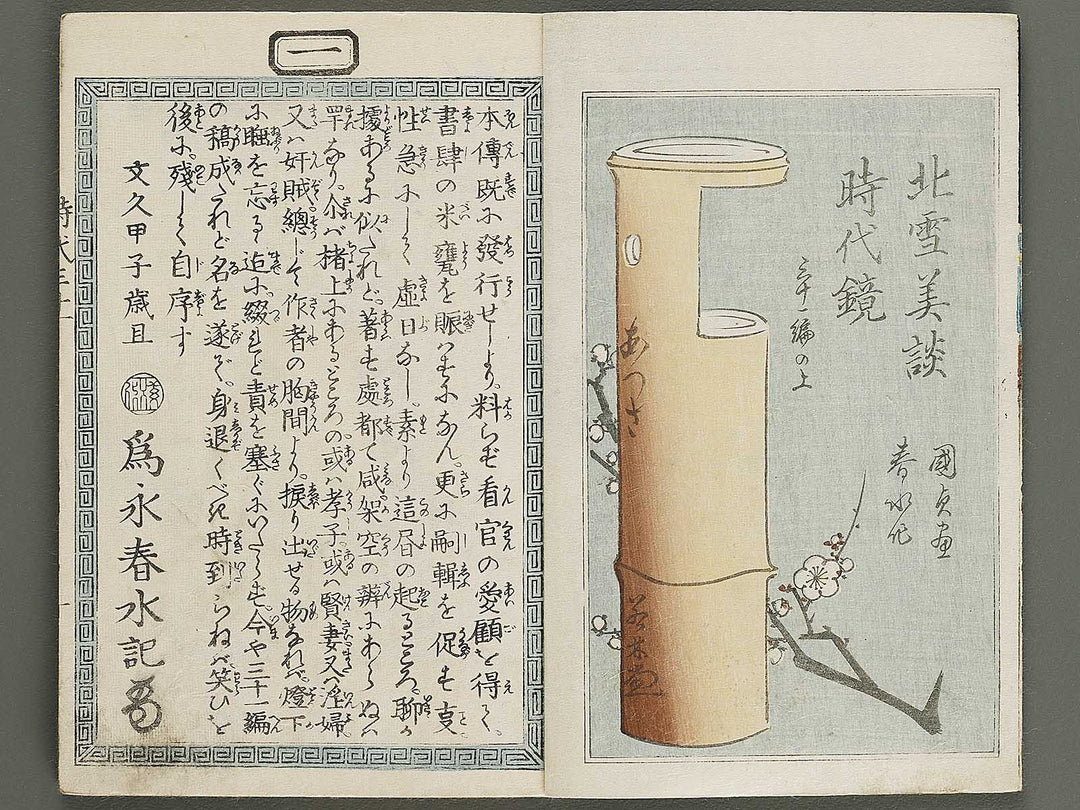 北雪美談
時代鏡
三十一編の上
國貞画
春水作
あつさ
一
本傳既に發行せしより。料らず看官の愛顧を得て。
書肆の米甕を賑はすになん。更に嗣輯を促す支
性急にして虚日なし。素より這回の起るところ。聊か
據あるに似たれど。著す處都て咸架空の辨にあらぬは
罕なり。介ば楮上にあるところの。或は孝子或は賢妻又は淫婦
又は奸賊。總じて作者の胸間より。捩り出せる物なれば。燈下
に睡を忘るゝ迠に綴れど責を塞ぐにいたらず。今や三十一編
の稿成たれど名を遂ず。身退くべき時到らねば笑ひを
後に。殘して自序す
文久甲子歳旦
爲永春水記